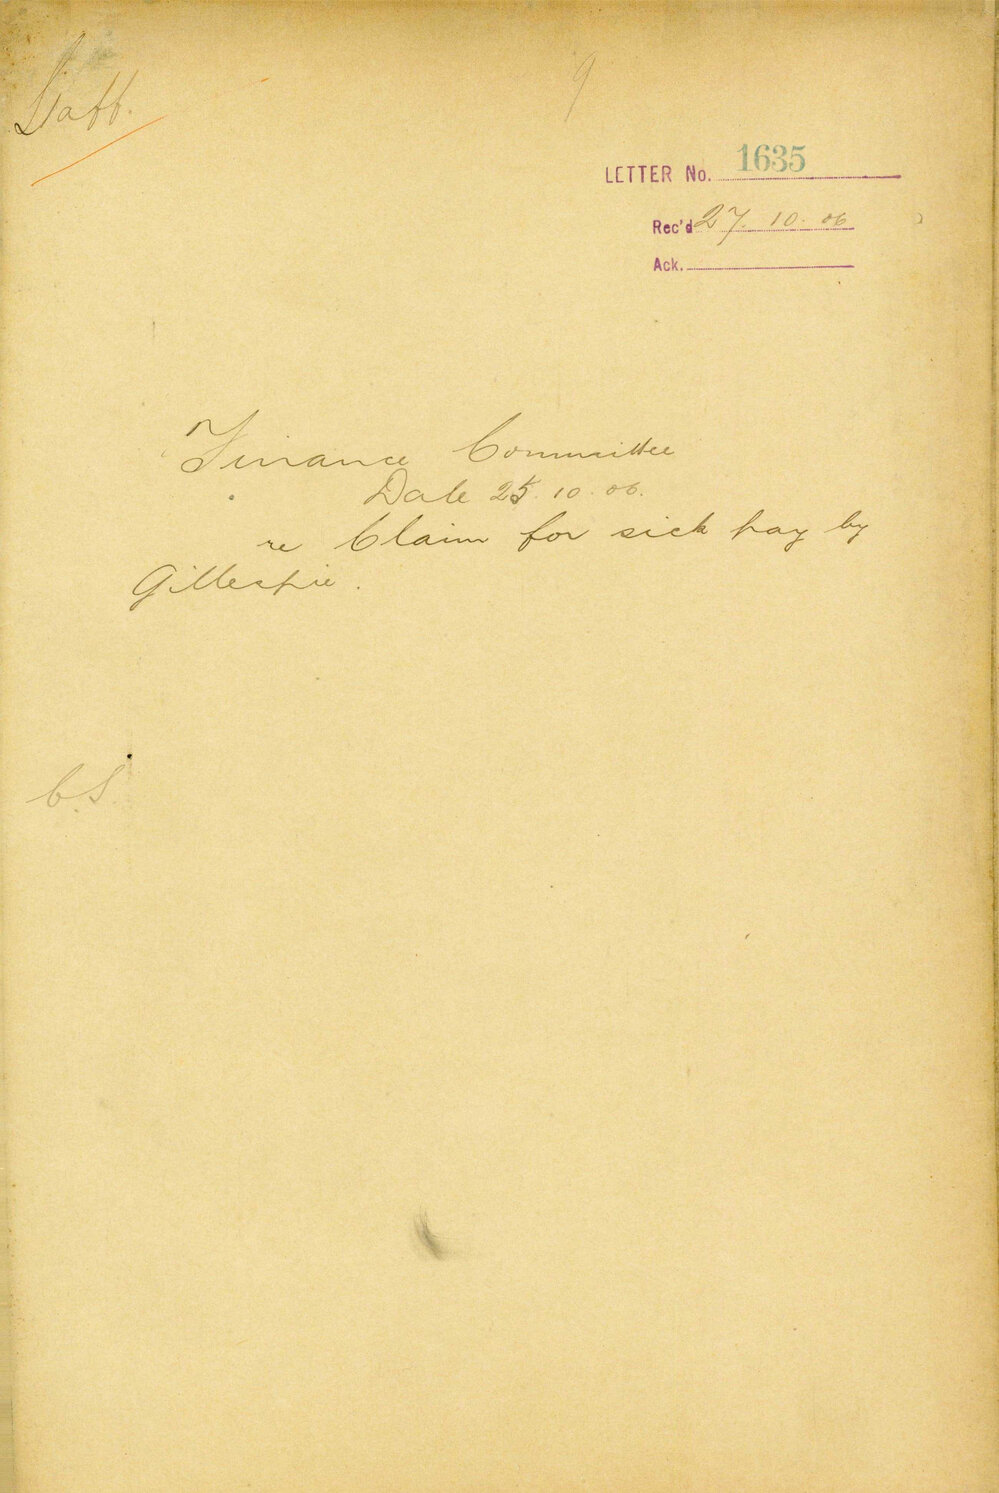 Staff.
9
LETTER No. 1635
Rec'd 27. 10. 06
Ack.
Finance Committee
Date 25. 10. 06.
re Claim for sick pay by
Gillespie.
C.S.